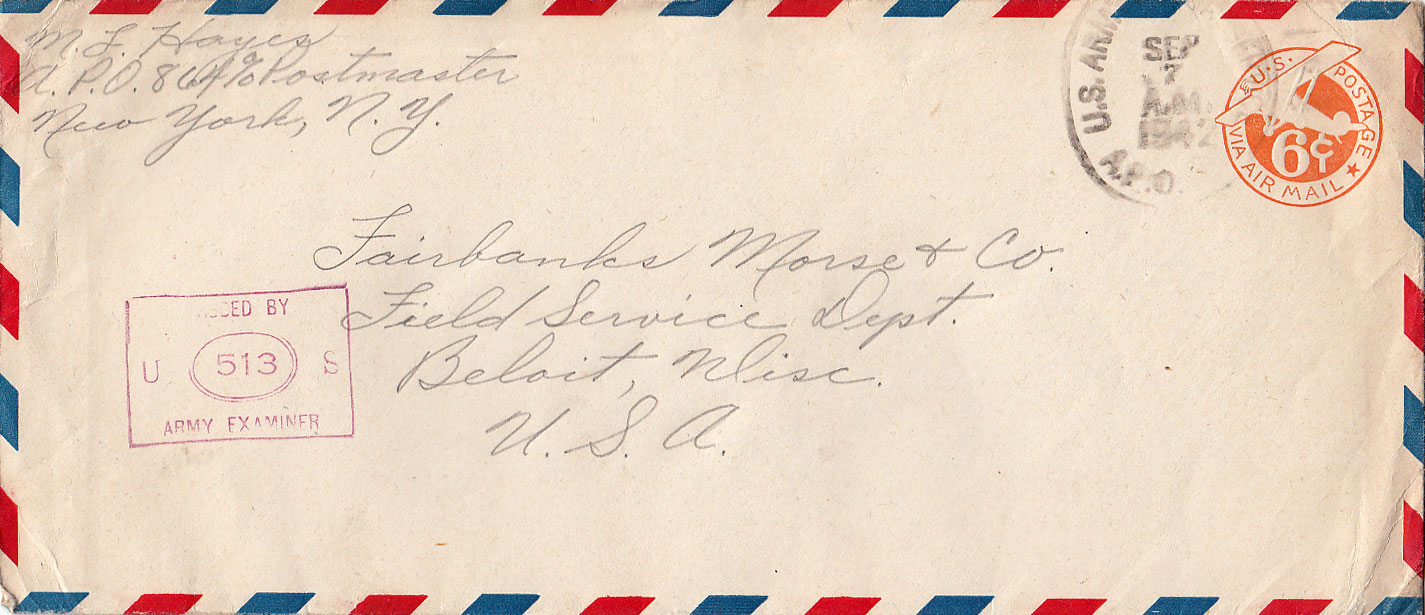 M. L. Hayes
A. P. O. 864 % Postmaster
New York, N. Y.
U.S. ARMY
SEP
7
A.M.
1942
A.P.O.
U.S. POSTAGE
6¢
VIA AIR MAIL
Fairbanks Morse & Co.
Field Service Dept.
Beloit, Wisc.
U. S. A.
BY
U 513 S
ARMY EXAMINER